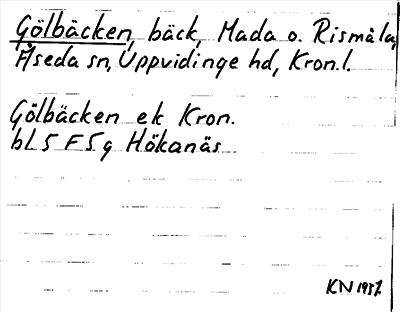 Gölbäcken, bäck, Mada o. Rismåla,
Åseda sn, Uppvidinge hd, Kron.l.
Gölbäcken ek Kron.
bl 5 F 5 g Hökanäs
KN 1937.